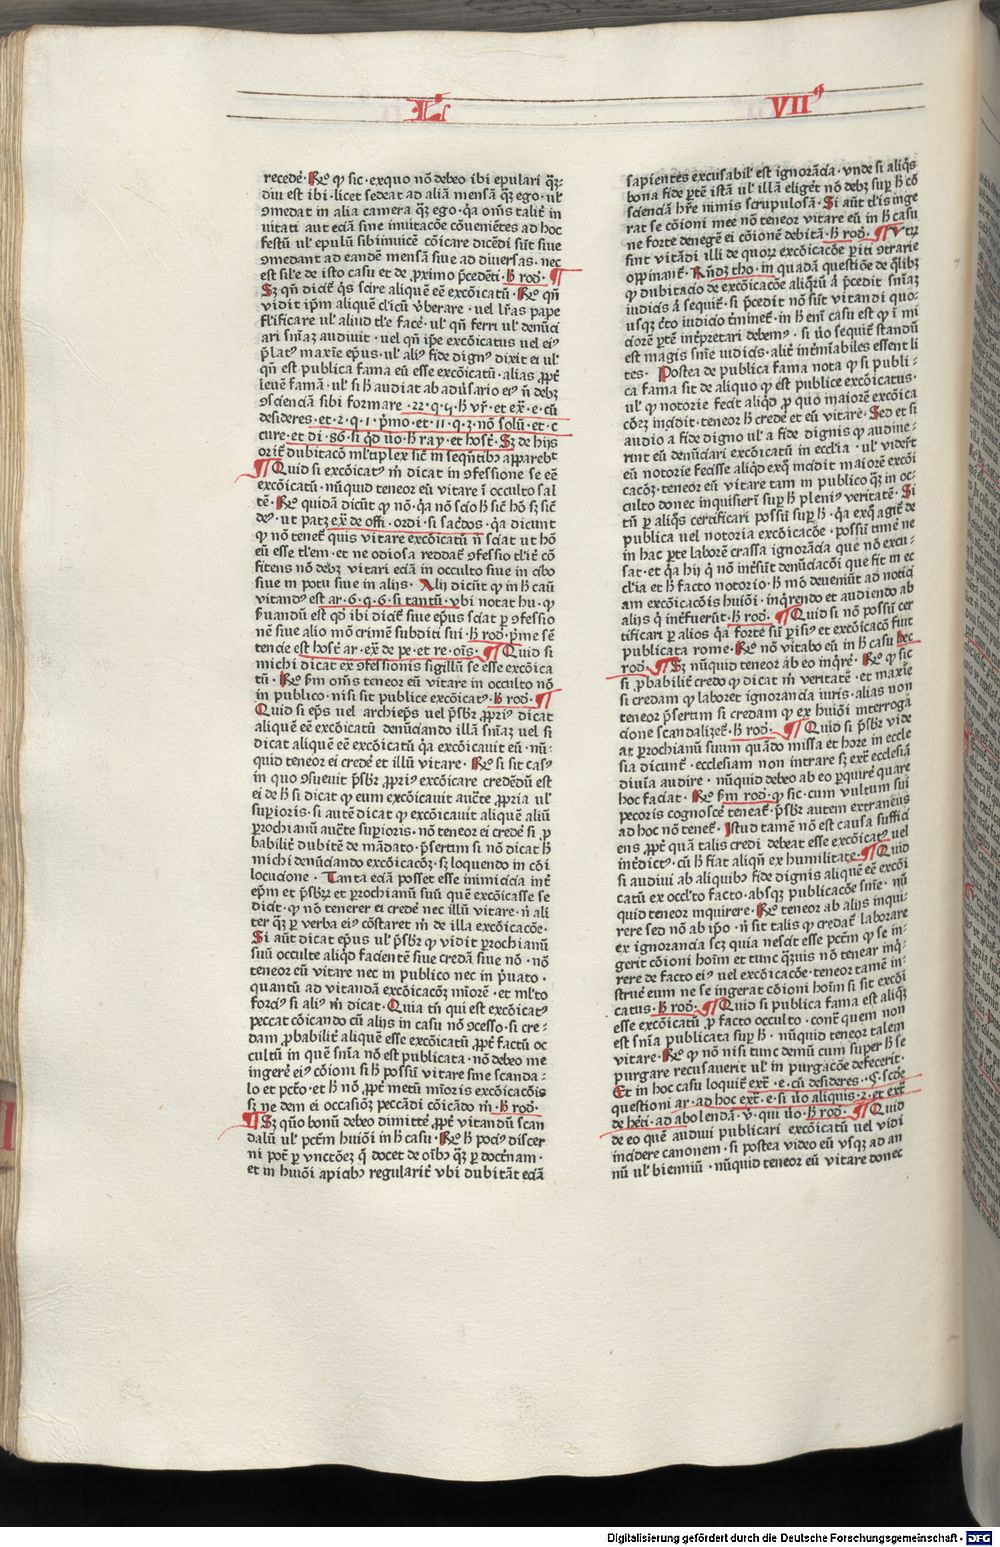 L
VII⁹
recedē· Rō ꝙ sic· exquo nō debeo ibi epulari q̄ꝫ-
diu est ibi· licet sedeat ad aliā mensā q̄ꝫ ego· ul'
ꝯmedat in alia camera q̄ꝫ ego· q̄a om̄s talit̄ in
uitati aut eciā sine inuitacōe cōueniētes ad hoc
festū ul' epulū sibi inuicē cōicare dicēdi sūt siue
ꝯmedant ad eandē mensā siue ad diuersas· nec
est sil'e de isto casu et de ꝓximo p̄cedēti· h̄ rod̄· ¶
Sꝫ qn̄ dicit̄ q̄s scire aliquē eē excōicatū· Rō qn̄
vidit ip̄m aliquē cl'icū v̄berare· uel l'ras pape
fl'ificare ul' aliud tl'e facē· ul' qn̄ ferri ul' denūci
ari sn̄iaꝫ audiuit· uel qn̄ ip̄e excōicatus uel ei⁹
p̄lat⁹ maxīe ep̄us· ul' ali⁹ fide dign⁹ dixit ei ul'
qn̄ est publica fama eū esse excōicatū· alias ꝓpt̄
leuē famā· ul' si h̄ audiat ab adu'sario ei⁹ n̄ debꝫ
ꝯsciencīā sibi formare· 22· q· 5· h̄ vr̄· et ex̄· e· cū
desideres· et· 2· q· 1· p̄mo· et· 11· q· 3· nō solū· et· c
cure· et di· 86· si q̄d v̄o· h̄ ray· et host̄· Sꝫ de hijs
orit̄ dubitacō ml'tiplex sic̄ in seq̄ntibꝰ apparebt
¶ Quid si excōicat⁹ m̄ dicat in ꝯfessione se eē
excōicatū· nūquid teneor eū vitare ī occulto sal
tē· Rō quidā dicūt ꝙ nō· q̄a nō scio h̄ sic̄ hō sꝫ sic̄
de⁹· ut patꝫ ex̄ de offi· ordi· si sac̄dos· q̄a dicunt
ꝙ nō tenet̄ quis vitare excōicatū n̄ sciat ut hō
eū esse tl'em· et ne odiosa reddat̄ ꝯfessio tl'it̄ cō
fitens nō debꝫ vitari eciā in occulto siue in cibo
siue in potu siue in alijs· Alij dicūt ꝙ in h̄ casū
vitand⁹ est ar· 6· q· 6· si tantū· vbi notat hu· ꝙ
p̄uandū est qd̄ ibi dicit̄ siue ep̄us sciat ꝑ ꝯfessio
nē siue alio mō crimē subditi sui· h̄ rod̄· p̄me sē
tencie est host̄ ar· ex̄· de pe· et re· oīs· ¶ Quid si
michi dicat ex̄ ꝯfessionis sigillū se esse excōica
tū· Rō s̄m om̄s teneor eū vitare in occulto nō
in publico· nisi sit publice excōicat⁹· h̄ rod̄· ¶
Quid si ep̄s uel archiep̄s uel p̄sbr̄ ꝓpri⁹ dicat
aliquē eē excōicatū denūciando illā sn̄iaꝫ uel si
dicat aliquē eē excōicatū q̄a excōicauit eū· nū-
quid teneor ei credē et illū vitare· Rō si sit cas⁹
in quo ꝯsueuit p̄sbr̄ ꝓpri⁹ excōicare credēdū est
ei de h̄ si dicat ꝙ eum excōicauit auct̄e ꝓpria ul'
sup̄ioris· si autē dicat ꝙ excōicauit aliquē aliū
ꝑrochianū auct̄e sup̄ioris· nō teneor ei credē si ꝓ
babilit̄ dubitē de mādato· p̄sertim si nō dicat h̄
michi denūciando excōicacōꝫ· sꝫ loquendo in cōi
locucione· Tanta eciā posset esse inimicicia int̄
ep̄m et p̄sbꝫ et ꝑrochianū suū quē excōicasse se
dicit· ꝙ nō tenerer ei credē nec illū vitare· n̄ ali
ter q̄ꝫ ꝑ verba ei⁹ cōstaret m̄ de illa excōicacōe·
Si aūt dicat ep̄us ul' p̄sbr̄ ꝙ vidit ꝑrochianū
suū occulte aliqd̄ facientē siue credā siue nō· nō
teneor eū vitare nec in publico nec in p̄uato·
quantū ad vitandā excōicacōꝫ mīorē· et ml'to
forci⁹ si ali⁹ m̄ dicat· Quia tn̄ qui est excōicat⁹
peccat cōicando cū alijs in casu nō ꝯcesso· si cre-
dam ꝓbabilit̄ aliquē esse excōicatū ꝓpt̄ factū oc
cultū in quē sn̄ia nō est publicata· nō debeo me
ingerere ei⁹ cōioni si h̄ possū vitare sine scanda-
lo et pct̄o· et h̄ nō ꝓpt̄ metū mīoris excōicacōis
sꝫ ne dem ei occasiōꝫ peccādi cōicādo m̄· h̄ rod̄·
¶ Sꝫ q̄uo bonū debeo dimittē ꝓpt̄ vitandū scan
dalū ul' pctm̄ huiōi in h̄ casu· Rō h̄ poci⁹ discer
ni pot̄ ꝑ vnctōeꝫ q̄ docet de oībꝰ q̄ꝫ ꝑ doct̄nam·
et in huiōi apicibꝰ regularit̄ vbi dubitāt eciā
sapientes excusabil' est ignorācia· vnde si aliq̄s
bona fide ꝑtē istā ul' illā eliget̄ nō debꝫ sup̄ h̄ cō
scienciā hr̄e nimis scrupulosā· Si aūt tl'is inge
rat se cōioni mee nō teneor vitare eū in h̄ casu
ne forte denegē ei cōionē debitā· h̄ rod̄· ¶ Vtꝝ
sint vitādi illi de quoꝝ excōicacōe ꝑiti ꝯtrarie
oppinant̄· Rn̄dꝫ tho· in quadā questiōe de q̄libꝫ
ꝙ dubitacio de excōicacōe aliq̄rū ā p̄cedit sn̄iaꝫ
iudicis ā sequit̄· si p̄cedit nō sūt vitandi quo-
usqꝫ c̄to iudicio t̄minet̄· in h̄ eni casu est ꝙ ī mi
ciorē ꝑtē int̄pretari debem⁹· si v̄o sequit̄ standū
est magis snīe iudicis· alit̄ int̄mīabiles essent li
tes· Postea de publica fama nota ꝙ si publi-
ca fama sit de aliquo ꝙ est publice exōicatus·
ul' ꝙ notorie fecit aliqd̄ ꝑ quo maiorē excōica
cōeꝫ incidit· teneor h̄ credē et eū vitare· Sed et si
audio a fide digno ul' a fide dignis ꝙ audiue-
rint eū denūciari excōicatū in eccl'ia· ul' viderit
eū notorie fecisse aliqd̄ exq̄ incidit maiorē excōi
cacōꝫ· teneor eū vitare tam in publico q̄ꝫ in oc-
culto donec inquisierī sup̄ h̄ pleni⁹ veritatē· Si
tn̄ ꝑ aliq̄s certificari possū sup̄ h̄· q̄a exq̄ agit̄ de
publica uel notoria excōicacōe· possū timē ne
in hac ꝑte laborē crassa ignorācia que nō excu-
sat· et q̄a hij q̄ nō int̄sūt denūciacōi que fit in ec
cl'ia et h̄ facto notorio· h̄ mō deueniūt ad notici
am excōicacōis huiōi· inq̄rendo et audiendo ab
alijs q̄ int̄fuerūt· h̄ rod̄· ¶ Quid si nō possū cer
tificari ꝑ alios q̄a forte sū ꝑisi⁹ et excōicacō fuit
publicata rome· Rō nō vitabo eū in h̄ casu hec
rod̄· ¶ Sꝫ nūquid teneor ab eo inq̄re· Rō ꝙ sic
si ꝓbabilit̄ credo ꝙ dicat m̄ veritatē· et maxīe
si credam ꝙ laboret ignorancia iuris· alias non
teneor p̄sertim si credam ꝙ ex huiōi interroga
cione scandalizet̄· h̄ rod̄· ¶ Quid si p̄sbr̄ vide
at ꝑrochianū suum quādo missa et hore in eccle
sia dicunt̄· ecclesiam non intrare sꝫ ext̄ ecclesiā
diuīa audire· nūquid debeo ab eo ꝑquirē quare
hoc faciat· Rō s̄m rod̄· ꝙ sic· cum vultum sui
pecoris cognoscē teneat̄· p̄sbr̄ autem extraneus
ad hoc nō tenet̄· Istud tamē nō est causa suffici
ens ꝓpt̄ quā talis credi debeat esse excōicat⁹ uel
int̄dict⁹· cū h̄ fiat aliqn̄ ex humilitate· ¶ Quid
si audiui ab aliquibꝰ fide dignis aliquē eē excōi
catū ex occl'to facto· absqꝫ publicacōe snīe· nū
quid teneor inquirere· Rō teneor ab alijs inqui
rere sed nō ab ip̄o· n̄ sit talis ꝙ credat̄ laborare
ex ignorancia scꝫ quia nescit esse pctm̄ ꝙ se in-
gerit cōioni hoīm et tunc q̄ꝫuis nō tenear inq̄-
rere de facto ei⁹ uel excōicacōe· teneor tamē in-
struē eum ne se ingerat cōioni hoīm si sit excōi
catus· h̄ rod̄· ¶ Quid si publica fama est aliq̄ꝫ
esse excōicatū ꝓ facto occulto· cont̄ quem non
est sn̄ia publicata sup̄ h̄· nūquid teneor talem
vitare· Rō ꝙ nō nisi tunc demū cum super h̄ se
purgare recusauerit ul' in purgacōe defecerit·
Et in hoc casu loquit̄ ext̄· e· cū desideres· §· scōe
questioni ar· ad hoc ext̄· e· si v̄o aliquis· 2· et ext̄
de heti· ad abolendā· v· qui v̄o· h̄ rod̄· ¶ Quid
de eo quē audiui publicari excōicatū uel vidi
incidere canonem· si postea video eū vsqꝫ ad an
nū ul' bienniū· nūquid teneor eū vitare donec
Digitalisierung gefördert durch die Deutsche Forschungsgemeinschaft - DFG